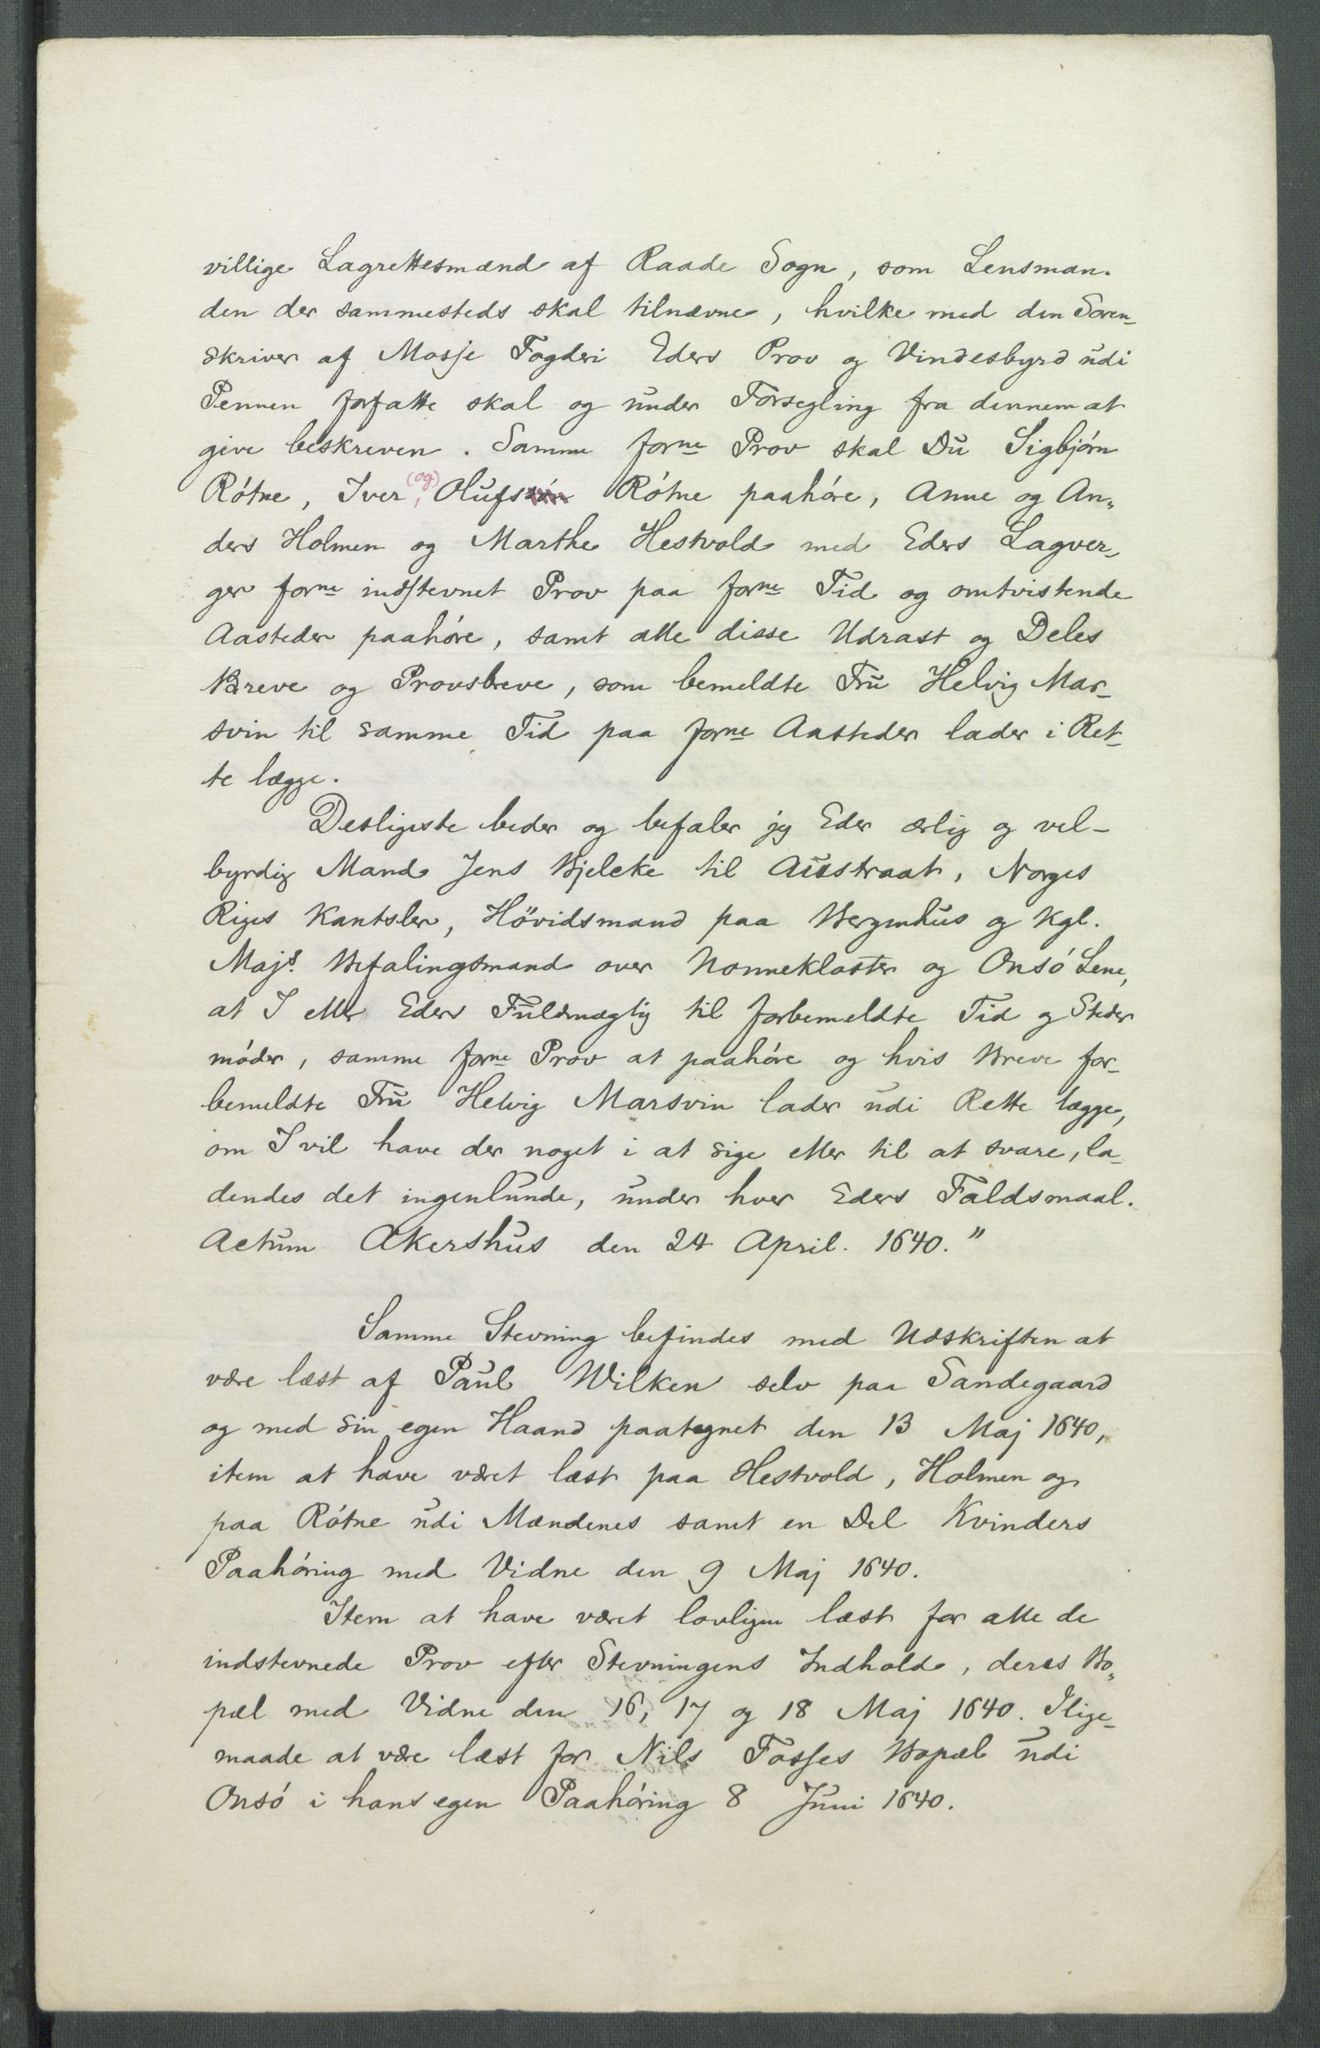 villige Lagrettesmænd af Raade Sogn, som Lensman-
den der sammesteds skal tilnævne, hvilke med den Soren-
skriver af Mosse Fogderi Eders Prov og Vindesbyrd udi
Pennen forfatte skal og under Forsegling fra dennem at
give beskreven. Samme forne Prov skal Du Sigbjórn
Rótne, Iver, (og) Olufsón Rótne paahóre, Anne og An-
ders Holmen og Marthe Hestvold med Eders Lagver-
ger forne indstevnet Prov paa forne Tid og omtvistende
Aasteder paahóre, samt alle disse Udrast og Deles
Breve og Provsbreve, som bemeldte Fru Helvig Mar-
svin til samme Tid paa forne Aasteder lader i Ret-
te lægge.
Desligeste beder og befaler jeg Eder ærlig og vel-
byrdig Mand Jens Bjelcke til Austraat, Norges
Riges Kantsler, Hövidsmand paa Bergenhus og Kgl.
Majs. Befalingsmand over Nonnekloster og Onsó Lene,
at I eller Eders Fuldmægtig til forbemeldte Tid og Steder
móder, samme forne Prov at paahóre og hvis Breve for-
bemeldte Fru Helvig Marsvin lader udi Rette lægge,
om I vil have der noget i at sige eller til at svare, la-
dendes det ingenlunde, under hver Eders Faldsmaal.
Actum Akershus den 24 April. 1640."
Samme Stevning befindes med Udskriften at
være læst af Paul Wilken selv paa Sandegaard
og med sin egen Haand paategnet den 13 Maj 1640,
item at have været læst paa Hestvold, Holmen og
paa Rótne udi Mændenes samt en Del Kvinders
Paahóring med Vidne den 9 Maj 1640.
Item at have været lovligen læst for alle de
indstevnede Prov efter Stevningens Indhold, deres Bo-
pæl med Vidne den 16, 17 og 18 Maj 1640. Ilige-
maade at være læst for Nils Fosses Bopæl udi
Onsó i hans egen Paahóring 8 Juni 1640.